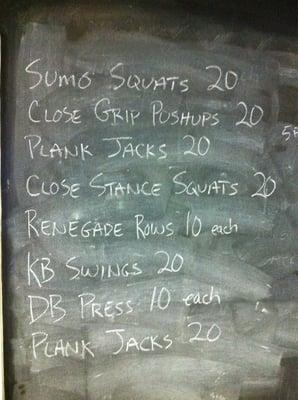 SUMO SQUATS 20
CLOSE GRIP PUSHUPS 20
PLANK JACKS 20
CLOSE STANCE SQUATS 20
RENEGADE ROWS 10 each
KB SWINGS 20
DB PRESS 10 each
PLANK JACKS 20